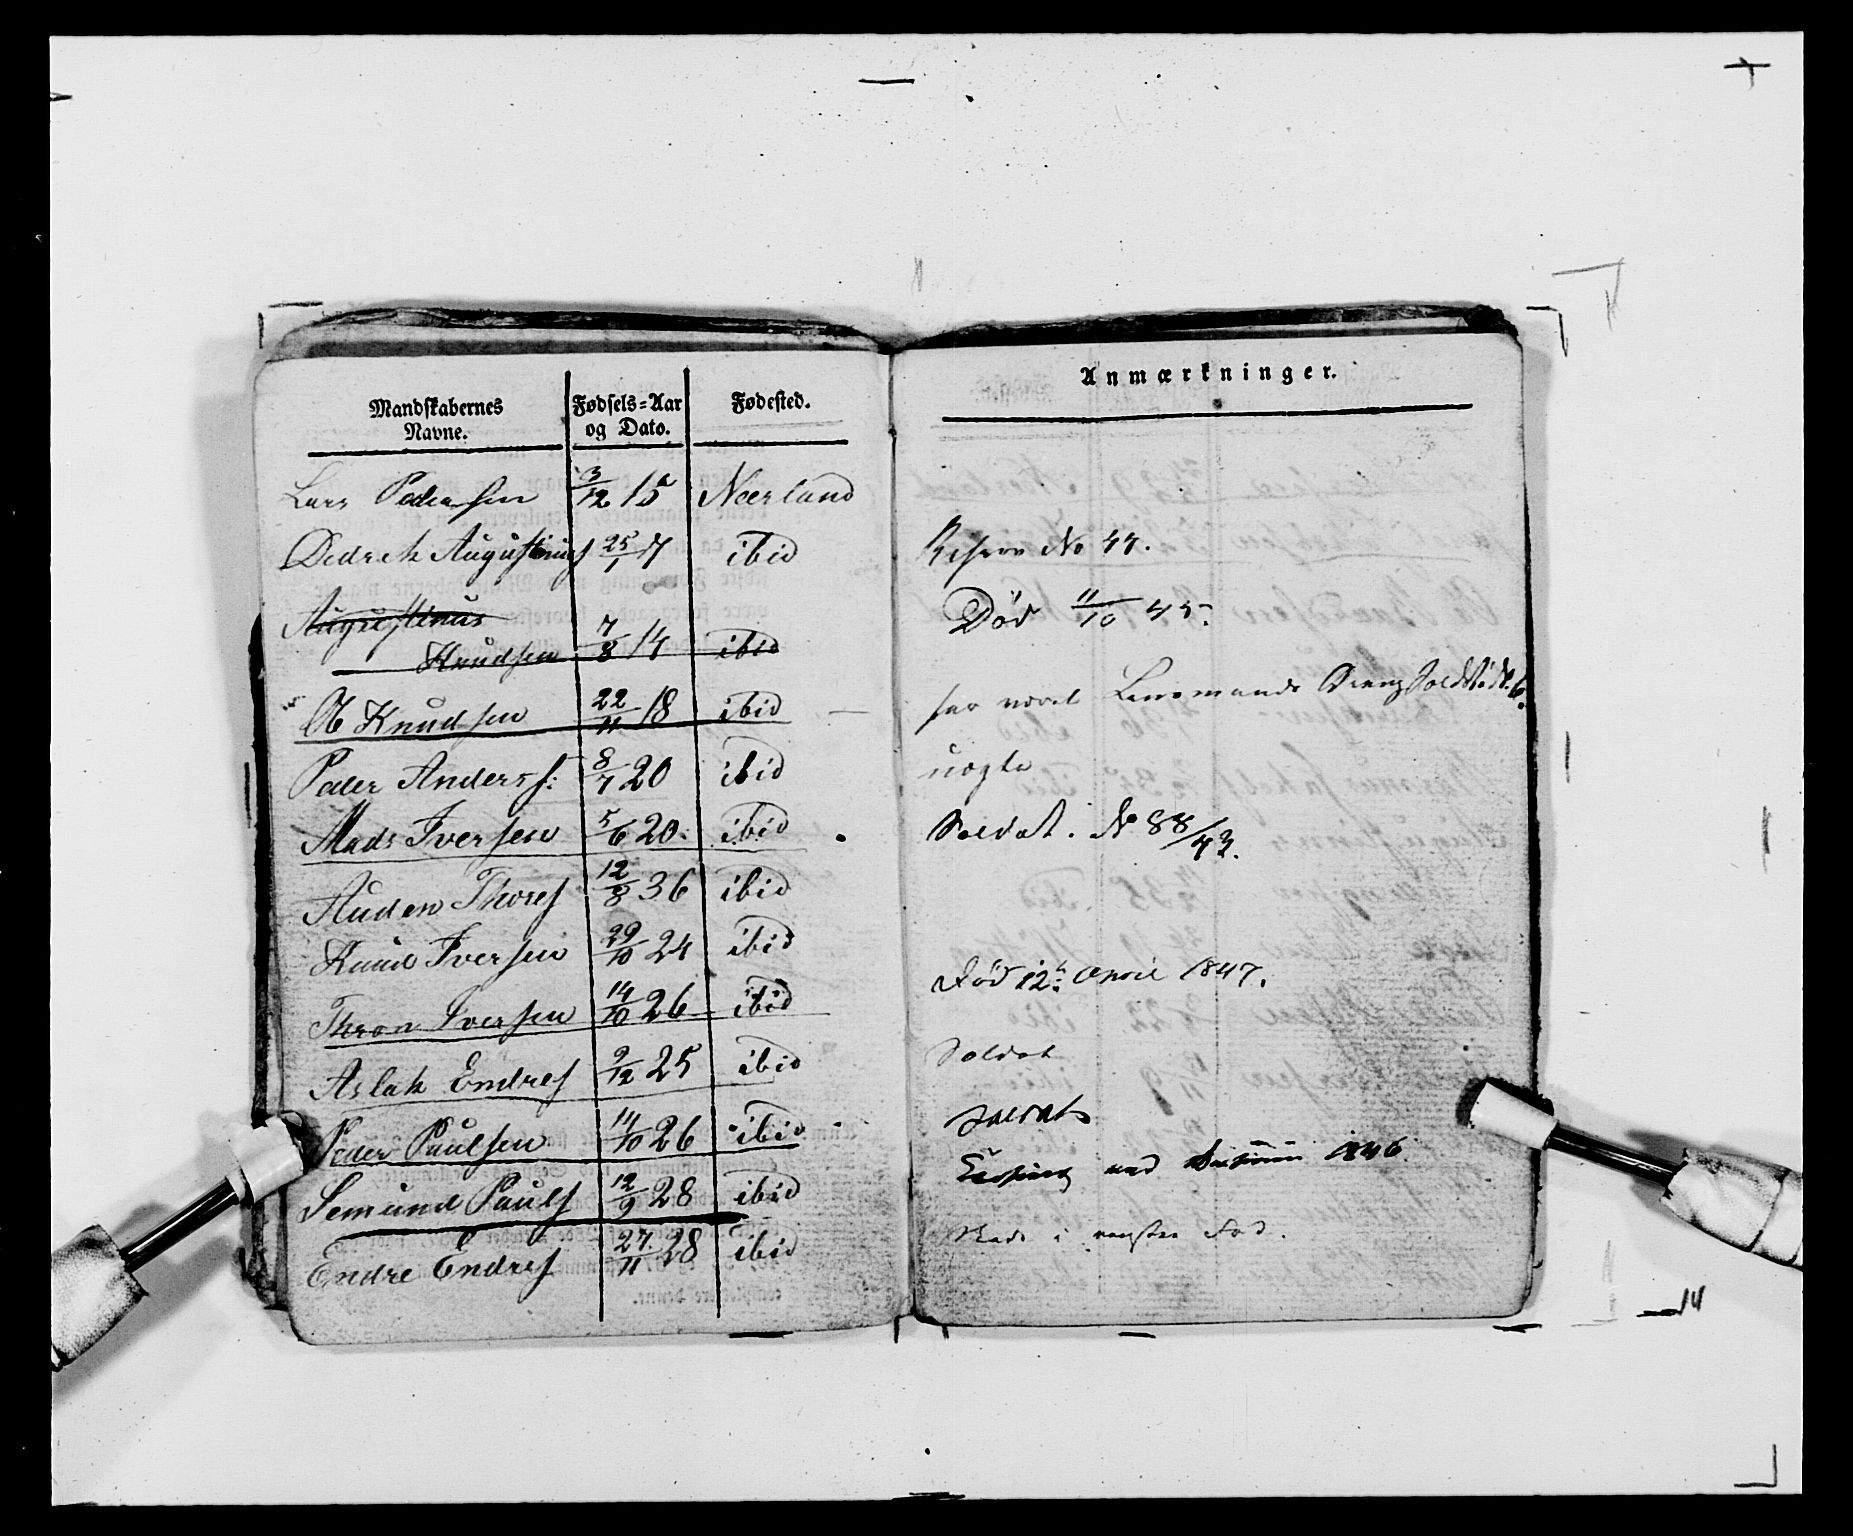 Mandskabernes Navne.
Fødsels=Aar og Dato.
Fødested.
Lars Pedersen 3/12 15 Nærland
Didrek Augustinus 25/1 7 ibid
Augustinus
Knudsen 7/8 14 ibid
Ob Knudsen 22/11 18 ibid
Peder Anders: 8/7 20 ibid
Mads Iversen 5/6 20. ibid
Auden Thores 12/8 36 ibid
Knud Iversen 29/10 24 ibid
Thron Iversen 14/10 26 ibid
Aslak Endres 9/12 25 ibid
Peder Paulsen 14/10 26 ibid
Semund Pauls 12/9 28 ibid
Endre Endres 27/11 28 ibid
Anmærkninger.
Reserv No 44.
Død 11/10 45.
har været Lensmands Dreng
uægte
Soldat. No 88/42.
Død 12t April 1847.
Soldat
Soldat
med 1846
Skade i venstre Fod.
14